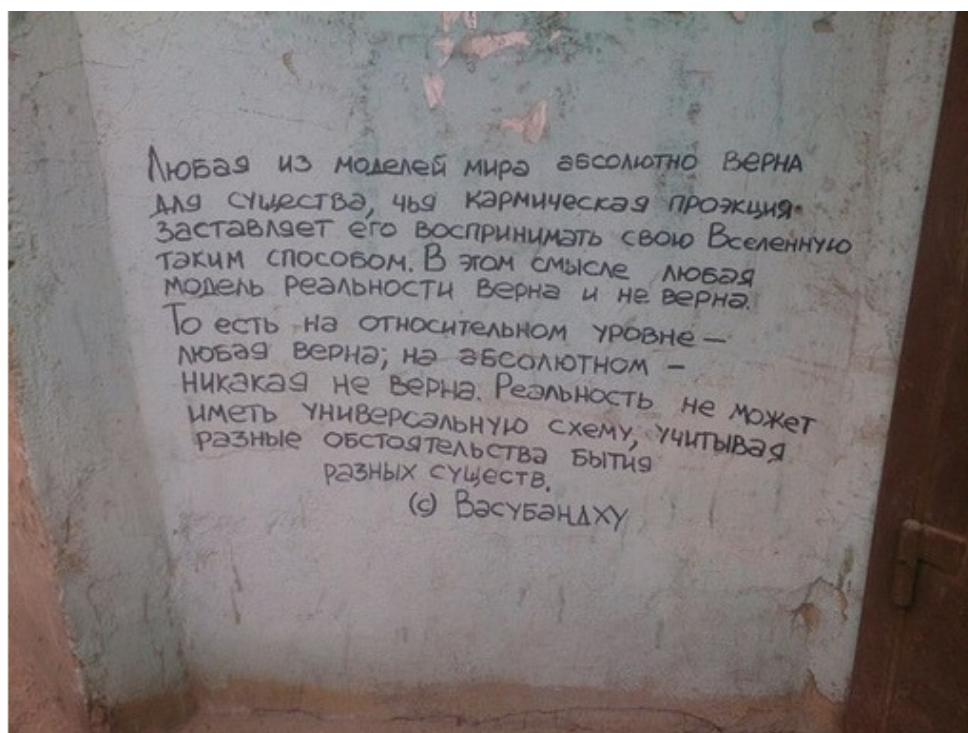 Любая из моделей мира абсолютно верна
для существа, чья кармическая проэкция
заставляет его воспринимать свою Вселенную
таким способом. В этом смысле любая
модель реальности верна и не верна.
То есть на относительном уровне –
любая верна; на абсолютном –
никакая не верна. Реальность не может
иметь универсальную схему, учитывая
разные обстоятельства бытия
разных существ.
(с) Васубандху